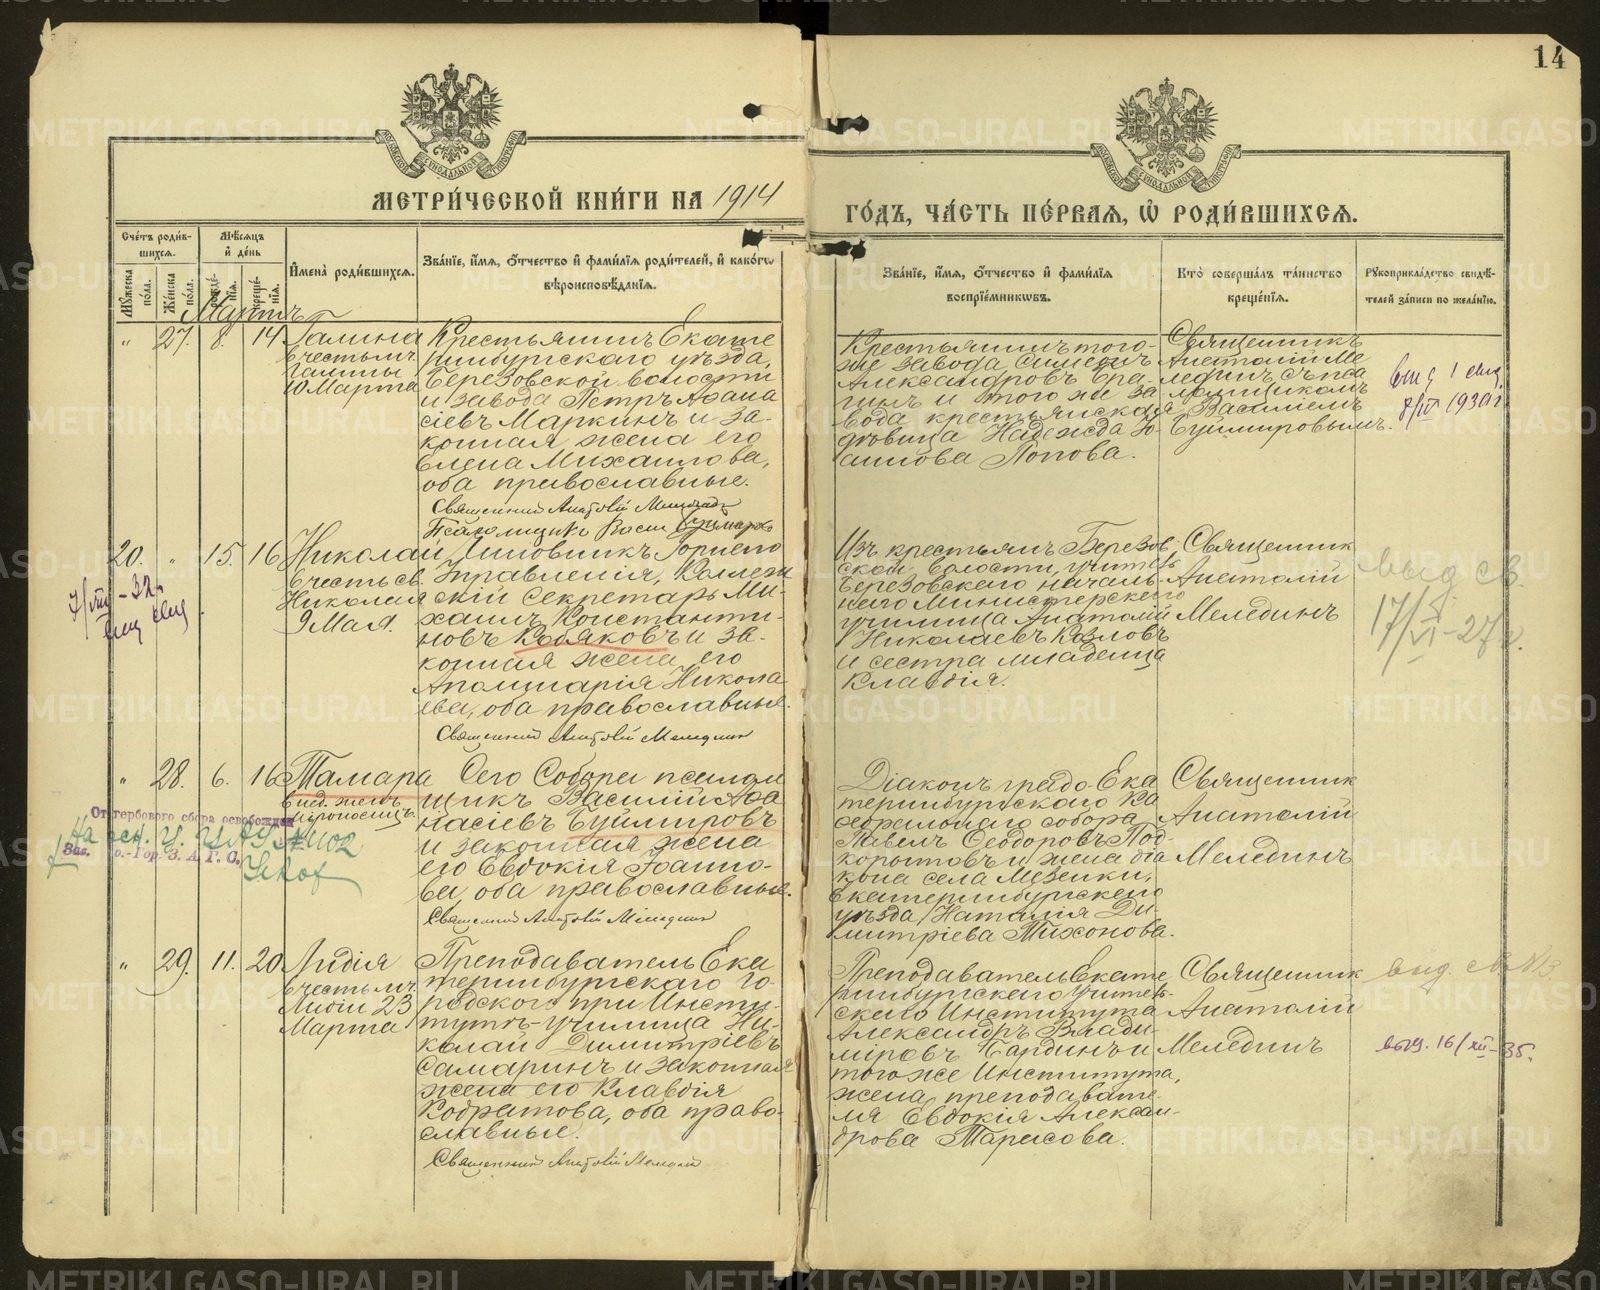 14
МЕТРИ́ЧЕСКОЙ КНИ́ГИ НА 1914
ГО́ДЪ, ЧА́СТЬ ПЕ́РВАЯ, Ѡ҆ РОДИ́ВШИХСЯ.
Сче́тъ роди́в-
шихся.
Му́жеска по́ла.
Же́нска по́ла.
Мѣ́сяцъ
и҆ де́нь
рожде́нїя.
креще́нїя.
И҆мена̀ роди́вшихся.
Зва́нїе, и҆́мя, ѻ҆́тчество и҆ фами́лїя роди́телей, и҆ како́гѡ
вѣроисповѣ́данїя.
Зва́нїе, и҆́мя, ѻ҆́тчество и҆ фами́лїя
воспрїе́мникѡвъ.
Кто̀ соверша́лъ та́инство
креще́нїя.
Рꙋкоприкла́дство свидѣ́-
телей за́писи по жела́нїю.
Мартъ
" 27. 8. 14
Галина
въ честь мч.
Галины
10 Марта
Крестьянинъ Екате
ринбургскаго уѣзда,
Березовской волости
и завода Петръ Аѳана
сіевъ Маркинъ и за-
конная жена его
Елена Михаилова,
оба православные.
Священникъ Анатолій Мелединъ
Псаломщикъ Васи Буймировъ
Крестьянинъ того-
же завода Симеонъ
Александровъ Бра-
гинъ и того же за
вода крестьянская
дѣвица Надежда Іо-
аннова Попова.
Священникъ
Анатолій Ме
лединъ съ пса
ломщикомъ
Василіемъ
Буймировымъ.
выд 1 свид.
8/IV 1930 г
20. " 15. 16
Николай
въ честь св.
Николая
9 Мая.
7/VIII - 32 г.
выд свид
Чиновникъ Горнаго
Управленія, Коллеж
скій секретарь Ми-
хаилъ Константи-
новъ Кобяковъ и за-
конная жена его
Аполинарія Никола
ева, оба православные.
Священникъ Анатолій Мелединъ
Изъ крестьянъ Березов
ской волости, учитель
Березовскаго началь-
наго Министерскаго
училища Анатолій
Николаевъ Козловъ
и сестра младенца
Клавдія.
Священник
Анатолій
Мелединъ
выд св.
17/VI-27 г.
" 28. 6. 16
Тамара
въ нед. женъ
мѵроносицъ.
От гербового сбора освобожден
На осн. У. ЦАУ № 1102
Зав. о.-Гор. З. А. Г. С.
Сего Собора псалом
щикъ Василій Аѳа
насіевъ Буймировъ
и законная жена
его Евдокія Іоанно-
ва, оба православные.
Священникъ Анатолій Мелединъ
Діаконъ градо Ека
теринбургскаго Ка
ѳедральнаго собора
Павелъ Ѳеодоровъ Под-
корытовъ и жена діа
кона села Мезенки,
Екатеринбургскаго
уѣзда, Наталія Ди-
митріева Тихонова.
Священник
Анатолій
Мелединъ
" 29. 11. 20
Лидія
въ честь мч.
Лидіи 23
Марта
Преподаватель Ека
теринбургскаго го-
родского при Инсти-
тутѣ-училища Ни-
колай Димитріевъ
Самаринъ и законная
жена его Клавдія
Кодратова, оба право-
славные.
Священникъ Анатолій Мелединъ
Преподаватель Екате
ринбургскаго Учитель
скаго Института
Александръ Влади-
міровъ Бардинъ и
того же Института,
жена преподавате-
ля Евдокія Алексан-
дрова Тарасова.
Священник
Анатолій
Мелединъ
выд. св. № 13
выд. 16/XII-35.